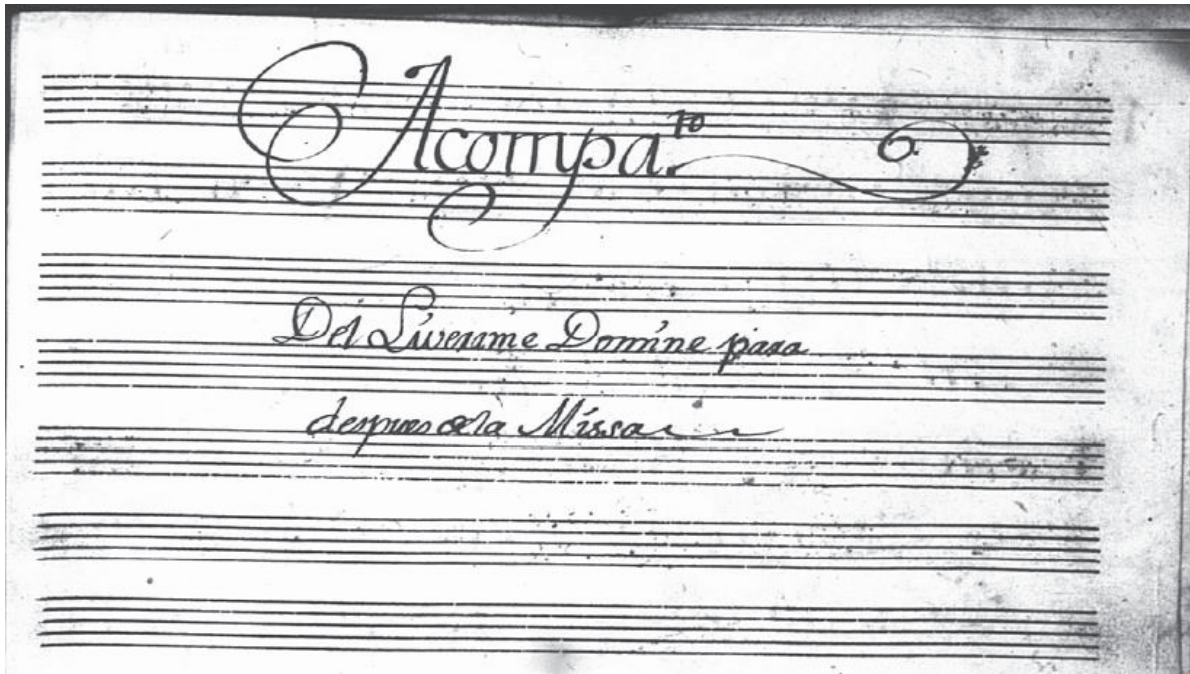 Acompa.to
Del Liverame Domine para
despues de la Missa